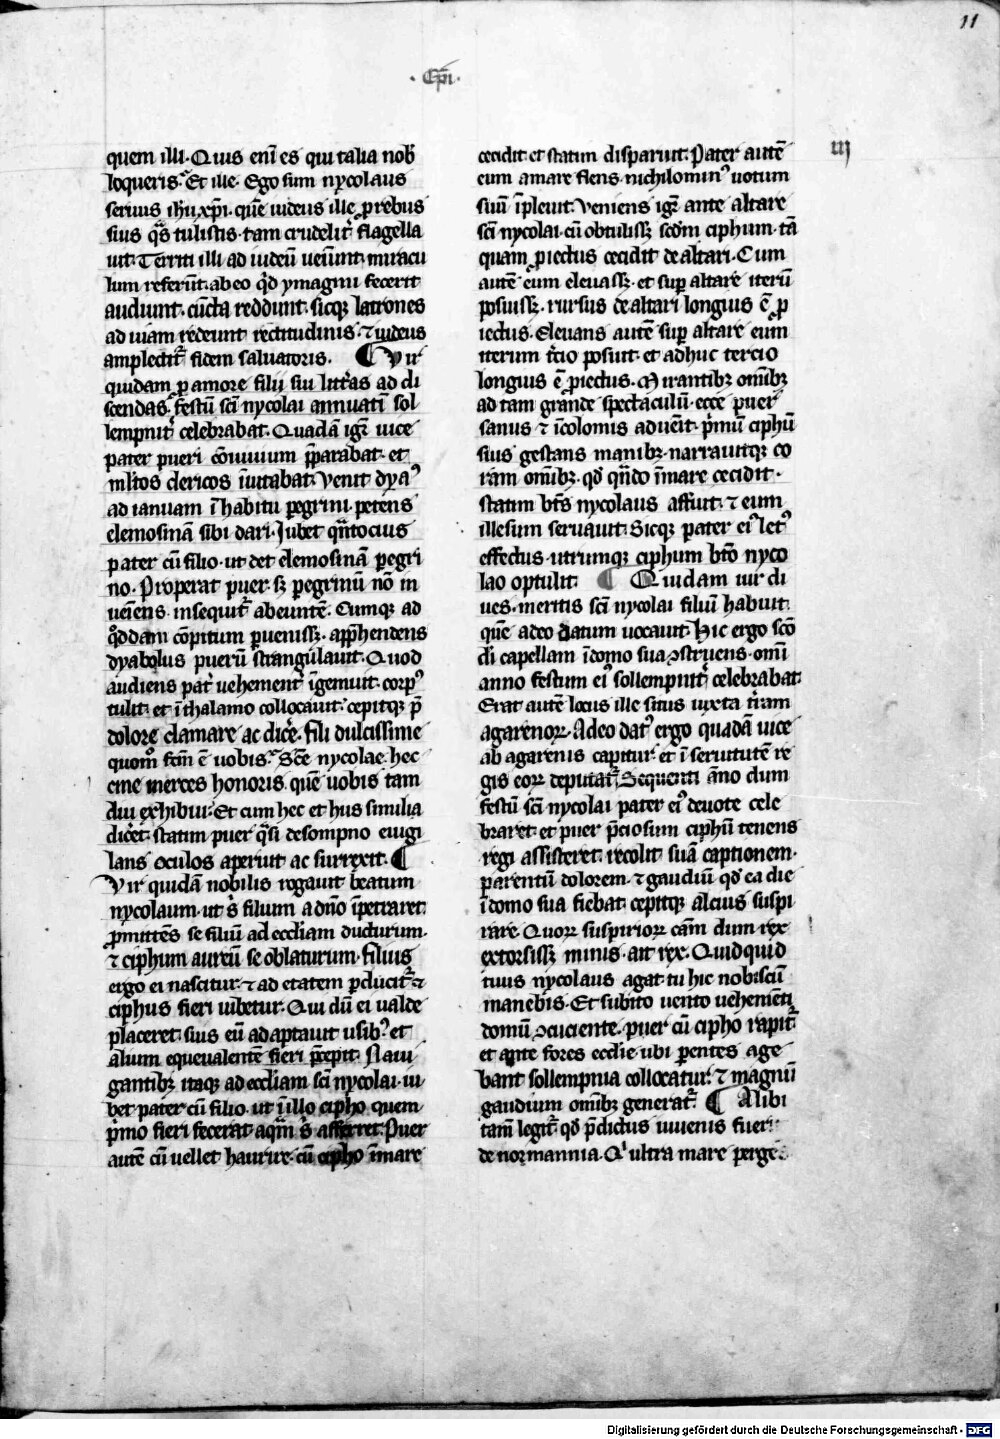 11
· Ep̄i ·
iij
quem illi · Quis enī es qui talia nob̄
loqueris · Et ille · Ego sum nycolaus
seruus ihu xp̄i · quē iudeus ille ꝓ rebus
suis q̄s tulistis · tam crudelit᷑ flagella
uit · Territi illi ad iudeū ueiūnt · miracu
lum referūt · ab eo q̄d ymagini fecerit
audiunt · cūcta reddunt · sicqꝫ latrones
ad uiam redeunt rectitudinis · ⁊ iudeus
amplectit᷑ fidem saluatoris · ¶ Vir
quidam ꝓ amore filii sui litt᷑as ad di
scendas · festū sc̄i nycolai annuatī sol
lempnit᷑ celebrabat · Quadā igr̄ uice
pater pueri cōuiuium p̄parabat · et
ml̄tos clericos īuitabat · Venit dyaꝰ
ad ianuam ī habitu pegrini · petens
elemosinā sibi dari · Jubet q̄ntocius
pater cū filio · ut det elemosinā pegri
no · Properat puer · sꝫ pegrinū nō in
ueiēns · insequit᷑ abeuntē · Cumqꝫ ad
q̄ddam cōpitum ꝑuenissꝫ · app̄hendens
dyabolus puerū strangulauit · Quod
audiens pat᷑ uehement᷑ īgemuit · corpꝰ
tulit · et ī thalamo collocauit · cepitqꝫ p̄
dolore clamare ac dic̄e · fili dulcissime
quom̊ fcm̄ ē uobis · Sc̄e nycolae · hec
cine merces honoris · quē uobis tam
diu exhibui · Et cum hec et hiis similia
dic̄et · statim puer q̄si de sompno euigi
lans oculos aperuit ac surrexit · ¶
Vir quidā nobilis rogauit beatum
nycolaum · ut s̄ filium a dn̄o īpetraret ·
ꝓmittēs se filiū ad eccl̄iam ducturum ·
⁊ ciphum aureū se oblaturum · filius
ergo ei nascitur · ⁊ ad etatem ꝑducit᷑ · ⁊
ciphus fieri iubetur · Qui dū ei ualde
placeret · suis eū adaptauit usibꝰ · et
alium equeualentē fieri p̄cepit · Naui
gantibꝫ itaqꝫ ad eccl̄iam sc̄i nycolai · iu
bet pater cū filio · ut ī illo cipho quem
p̄mo fieri fecerat · aq̄m s̄ afferret · Puer
autē cū uellet haurire · cū cipho ī mare
cecidit · et statim disparuit · Pater autē
eum amare flens · nichilominꝰ uotum
suū īpleuit · Veniens igr̄ ante altare
sc̄i nycolai · cū obtulissꝫ scdm̄ ciphum · tā
quam ꝓiectus cecidit de altari · Cum
autē eum eleuassꝫ · et suꝑ altare iterū
posuissꝫ · rursus de altari longius ē ꝓ
iectus · Eleuans autē suꝑ altare eum
iterum t᷑cio posuit · et adhuc tercio
longius ē ꝓiectus · Mirantibꝫ om̄ibꝫ
ad tam grande spectaculū · ecce puer
sanus ⁊ īcolomis aduēit · p̄mū ciphū
suis gestans manibꝫ · narrauitqꝫ co
ram om̄ibꝫ · qd̄ qn̄do ī mare cecidit ·
statim bt̄s nycolaus affuit · ⁊ eum
illesum seruauit · Sicqꝫ pater eiꝰ letꝰ
effectus · utrumqꝫ ciphum bt̄o nyco
lao optulit · ¶ Quidam uir di
ues · meritis sc̄i nycolai filiū habuit ·
quē adeo datum uocauit · Hic ergo sc̄o
di capellam ī domo sua ꝯstruens · om̄i
anno festum eiꝰ sollempnit᷑ celebrabat
Erat autē locus ille situs iuxta t᷑ram
agarenoꝝ · Adeo datꝰ ergo quadā uice
ab agarenis capitur · et ī seruitutē re
gis eoꝝ deputat᷑ · Sequenti āno dum
festū sc̄i nycolai pater eiꝰ deuote cele
braret · et puer p̄ciosum ciphū tenens
regi assisteret · recolit suā captionem ·
parentū dolorem · ⁊ gaudiū qd̄ ea die
ī domo sua fiebat · cepitqꝫ alcius suspi
rare · Quoꝝ suspirioꝝ cām dum rex
extorsissꝫ minis · ait rex · Quidquid
tuus nycolaus agat · tu hic nobiscū
manebis · Et subito uento uehemēti
domū ꝯcuciente · puer cū cipho rapit᷑
et ante fores eccl̄ie ubi ꝑentes age
bant sollempnia collocatur · ⁊ magnū
gaudium om̄ibꝫ generat᷑ · ¶ Alibi
tam̄ legit᷑ · qd̄ p̄dictus iuuenis fueri
de normannia · Qͥ ultra mare perge
Digitalisierung gefördert durch die Deutsche Forschungsgemeinschaft - DFG